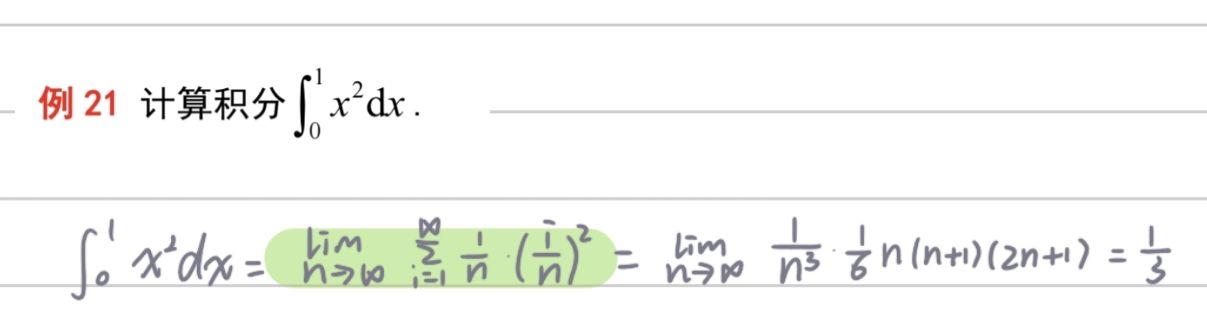 例 21 计算积分 ∫₀¹ x² dx .
∫₀¹ x² dx = lim_{n→∞} ∑_{i=1}^{∞} 1/n · (i/n)² = lim_{n→∞} 1/n³ · 1/6 n(n+1)(2n+1) = 1/3